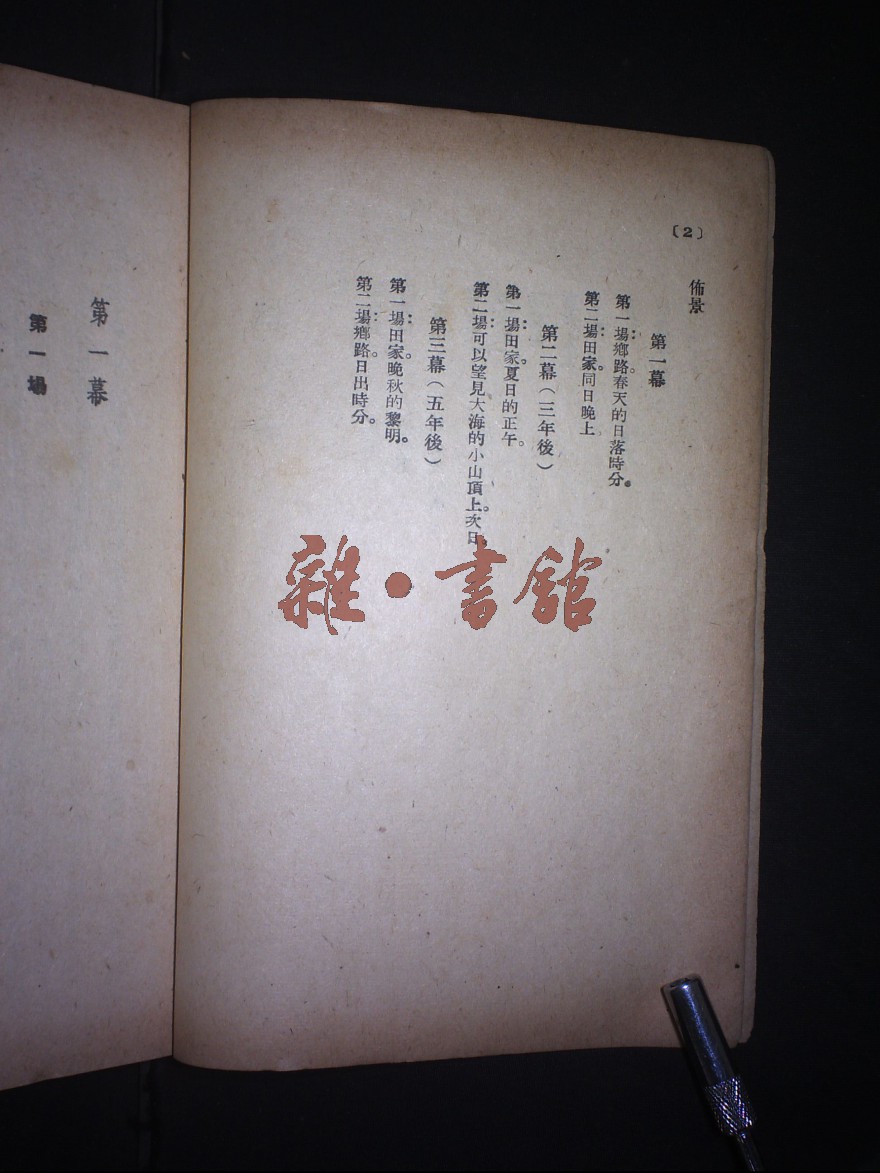 〔2〕
佈景
第一幕
第一場：鄉路。春天的日落時分。
第二場：田家。同日晚上
第二幕（三年後）
第一場：田家。夏日的正午。
第二場：可以望見大海的小山頂上。次日。
第三幕（五年後）
第一場：田家。晚秋的黎明。
第二場：鄉路。日出時分。
第一幕
第一場
雜·書館